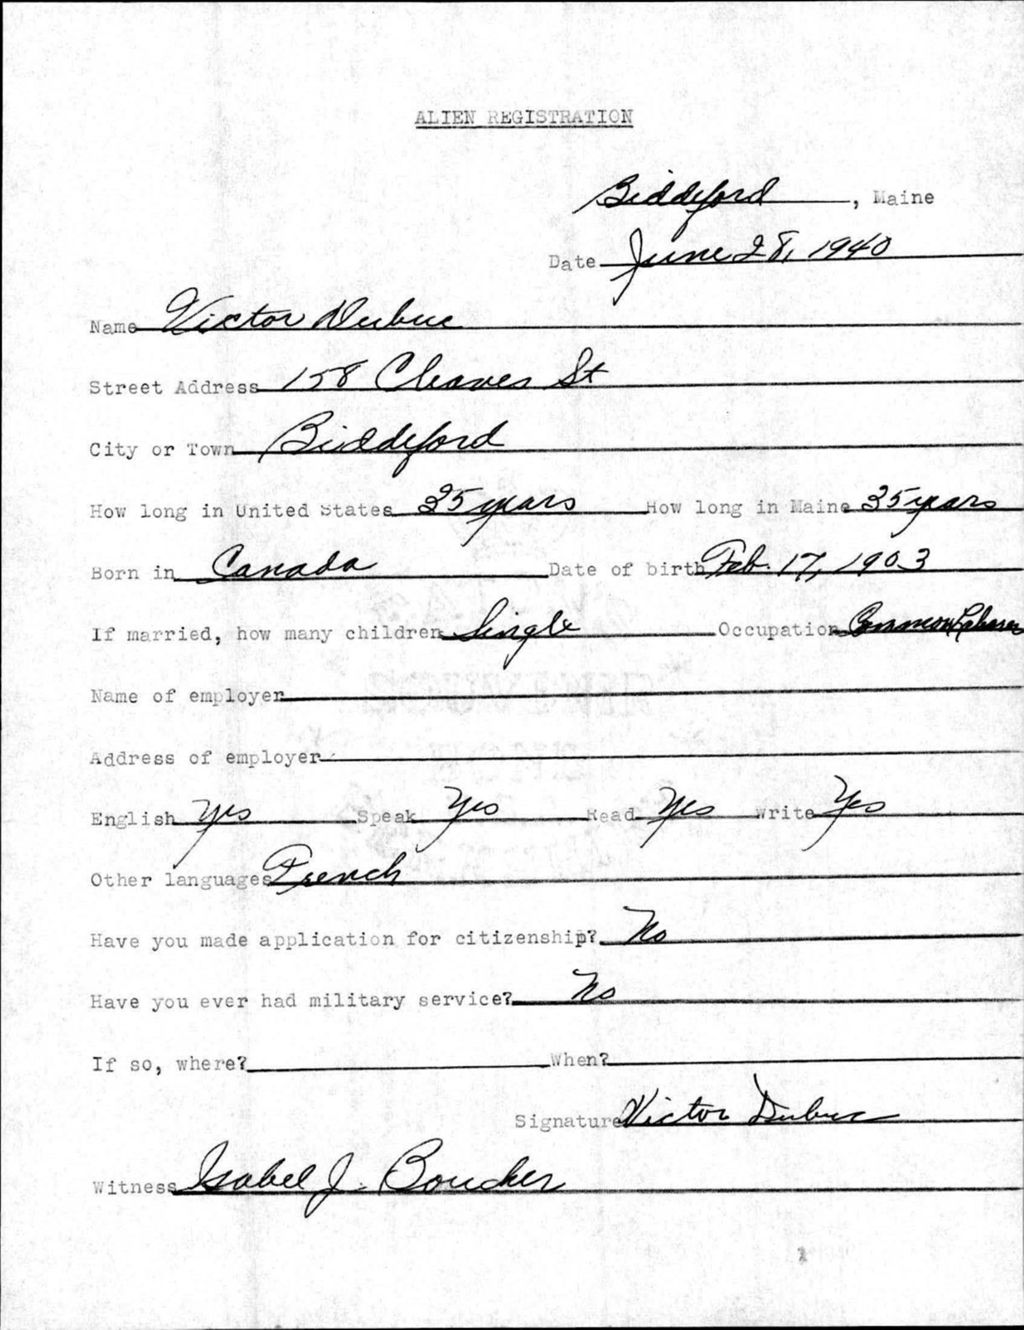 ALIEN REGISTRATION
Biddeford, Maine
Date June 28, 1940
Name Victor Dubuc
Street Address 158 Cleaves St
City or Town Biddeford
How long in United States 35 years How long in Maine 35 years
Born in Canada Date of birth Feb. 17, 1903
If married, how many children Single Occupation Common Laborer
Name of employer
Address of employer
English Yes Speak Yes Read Yes Write Yes
Other languages French
Have you made application for citizenship? No
Have you ever had military service? No
If so, where? When?
Signature Victor Dubuc
Witness Isabel J. Boucher